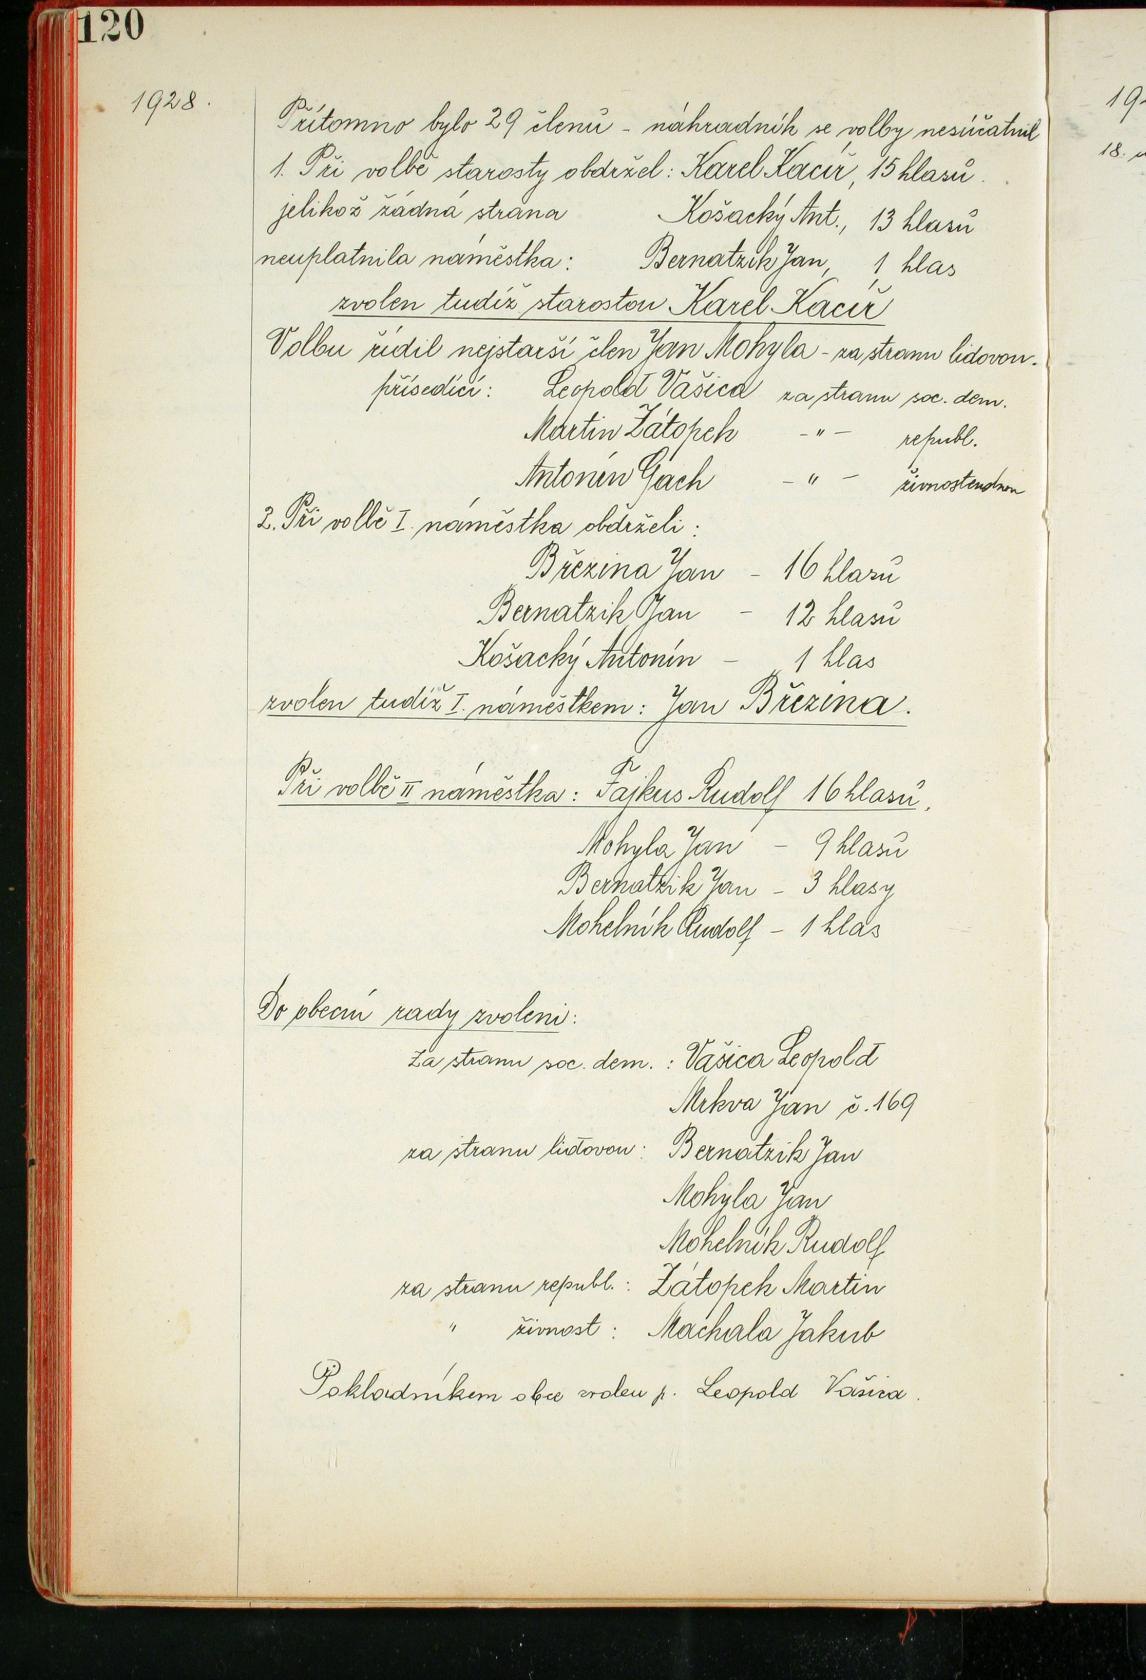 120
1928.
Přítomno bylo 29 členů - náhradník se volby nesúčatnil
1. Při volbě starosty obdržel: Karel Kacíř, 15 hlasů.
jelikož žádná strana Košacký Ant., 13 hlasů
neuplatnila náměstka: Bernatzik Jan, 1 hlas
zvolen tudíž starostou Karel Kacíř
Volbu řídil nejstarší člen Jan Mohyla - za stranu lidovou.
přísedící: Leopold Vašica za stranu soc. dem.
Martin Zátopek -"- republ.
Antonín Gach -"- živnostenskou
2. Při volbě I. náměstka obdrželi:
Březina Jan - 16 hlasů
Bernatzik Jan - 12 hlasů
Košacký Antonín - 1 hlas
zvolen tudíž I. náměstkem: Jan Březina.
Při volbě II náměstka: Fajkus Rudolf 16 hlasů,
Mohyla Jan - 9 hlasů
Bernatzik Jan - 3 hlasy
Mohelník Rudolf - 1 hlas
Do obecní rady zvoleni:
Za stranu soc. dem. : Vašica Leopold
Mrkva Jan č. 169
za stranu lidovou: Bernatzik Jan
Mohyla Jan
Mohelník Rudolf
za stranu republ. : Zátopek Martin
" živnost : Machala Jakub
Pokladníkem obce zvolen p. Leopold Vašica.
19
18.